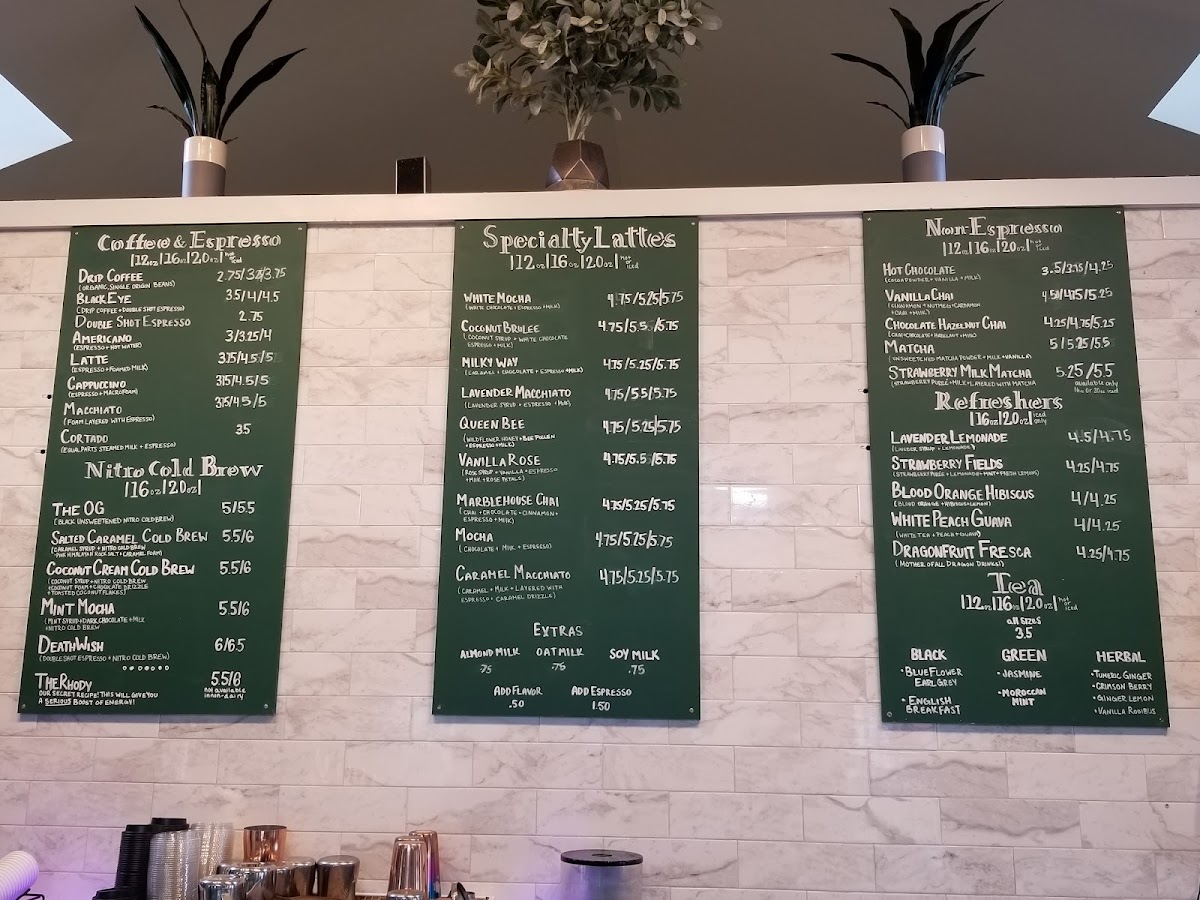 Coffee & Espresso
|12oz|16oz|20oz| hot iced
Drip Coffee 2.75/3.25/3.75
(Organic, single origin beans)
Black Eye 3.5/4/4.5
(Drip coffee + double shot espresso)
Double Shot Espresso 2.75
Americano 3/3.25/4
(Espresso + hot water)
Latte 3.75/4.5/5
(Espresso + foamed milk)
Cappuccino 3.75/4.5/5
(Espresso + macrofoam)
Macchiato 3.75/4.5/5
(Foam layered with espresso)
Cortado 3.5
(Equal parts steamed milk + espresso)
Nitro Cold Brew
|16oz|20oz|
The OG 5/5.5
(Black unsweetened nitro cold brew)
Salted Caramel Cold Brew 5.5/6
(Caramel syrup + nitro cold brew
+ pink Himalayan rock salt + caramel foam)
Coconut Cream Cold Brew 5.5/6
(Coconut syrup + nitro cold brew
+ coconut foam + chocolate drizzle
+ toasted coconut flakes)
Mint Mocha 5.5/6
(Mint syrup + dark chocolate + milk
+ nitro cold brew
Death Wish 6/6.5
(Double shot espresso + nitro cold brew)
The Rhody 5.5/6
Our secret recipe! This will give you not available
a serious boost of energy! in non-dairy
Specialty Lattes
|12oz|16oz|20oz| hot iced
White Mocha 4.75/5.25/5.75
(White chocolate + espresso + milk)
Coconut Brulee 4.75/5.5/5.75
(Coconut syrup + white chocolate
espresso + milk)
Milky Way 4.75/5.25/5.75
(Caramel + chocolate + espresso + milk)
Lavender Macchiato 4.75/5.5/5.75
(Lavender syrup + espresso + milk)
Queen Bee 4.75/5.25/5.75
(Wildflower honey + bee pollen
+ espresso + milk)
Vanilla Rose 4.75/5.5/5.75
(Rose syrup + vanilla + espresso
+ milk + rose petals)
Marblehouse Chai 4.75/5.25/5.75
(Chai + chocolate + cinnamon +
espresso + milk)
Mocha 4.75/5.25/5.75
(Chocolate + milk + espresso)
Caramel Macchiato 4.75/5.25/5.75
(Caramel + milk + layered with
espresso + caramel drizzle)
Extras
Almond Milk Oat Milk Soy Milk
.75 .75 .75
Add Flavor Add Espresso
.50 1.50
Non Espresso
|12oz|16oz|20oz| hot iced
Hot Chocolate 3.5/3.75/4.25
(Cocoa powder + vanilla + milk)
Vanilla Chai 4.50/4.75/5.25
(Cinnamon + nutmeg + cardamom
+ chai + milk)
Chocolate Hazelnut Chai 4.25/4.75/5.25
(Chai + chocolate + hazelnut + milk)
Matcha 5/5.25/5.5
(Unsweetened matcha powder + milk + vanilla)
Strawberry Milk Matcha 5.25/5.5
(Strawberry purée + milk + layered with matcha available only
16oz or 20oz iced
Refreshers
|16oz|20oz| iced only
Lavender Lemonade 4.5/4.75
(Lavender syrup + lemonade)
Strawberry Fields 4.25/4.75
(Strawberry purée + lemonade + mint + fresh lemons)
Blood Orange Hibiscus 4/4.25
(Blood orange + hibiscus + lemon)
White Peach Guava 4/4.25
(White tea + peach + guava)
Dragonfruit Fresca 4.25/4.75
(Mother of all Dragon Drinks!)
Tea
|12oz|16oz|20oz| hot or iced
all sizes
3.5
Black Green Herbal
• Blue Flower Earl Grey
• English Breakfast
• Jasmine
• Moroccan Mint
• Tumeric Ginger
• Crimson Berry
• Ginger Lemon
• Vanilla Rooibus